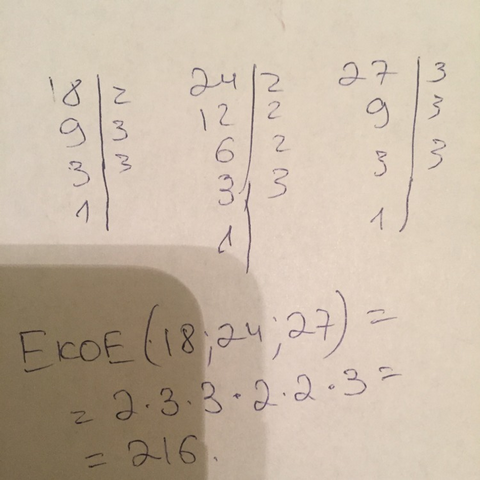 18 | 2
9 | 3
3 | 3
1 |
24 | 2
12 | 2
6 | 2
3 | 3
1 |
27 | 3
9 | 3
3 | 3
1 |
EKOE (18;24;27) =
= 2·3·3·2·2·3 =
= 216.